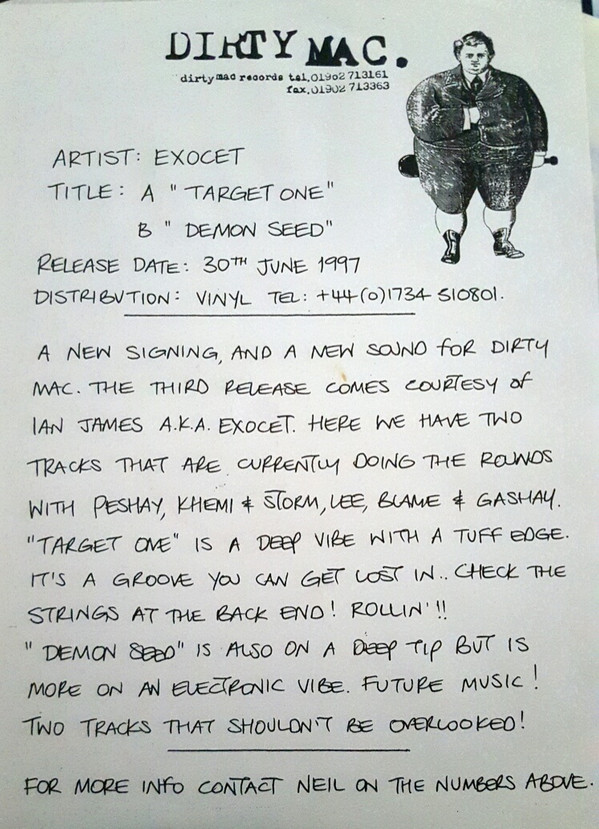 DIRTY MAC.
dirty mac records tel.01902 713161
fax.01902 713363
ARTIST: EXOCET
TITLE: A "TARGET ONE"
B "DEMON SEED"
RELEASE DATE: 30TH JUNE 1997
DISTRIBUTION: VINYL TEL: +44(0)1734 510801.
A NEW SIGNING, AND A NEW SOUND FOR DIRTY
MAC. THE THIRD RELEASE COMES COURTESY OF
IAN JAMES A.K.A. EXOCET. HERE WE HAVE TWO
TRACKS THAT ARE CURRENTLY DOING THE ROUNDS
WITH PESHAY, KHEMI & STORM, LEE, BLAME & GASHAY.
"TARGET ONE" IS A DEEP VIBE WITH A TUFF EDGE.
IT'S A GROOVE YOU CAN GET LOST IN.. CHECK THE
STRINGS AT THE BACK END! ROLLIN'!!
"DEMON SEED" IS ALSO ON A DEEP TIP BUT IS
MORE ON AN ELECTRONIC VIBE. FUTURE MUSIC!
TWO TRACKS THAT SHOULDN'T BE OVERLOOKED!
FOR MORE INFO CONTACT NEIL ON THE NUMBERS ABOVE.